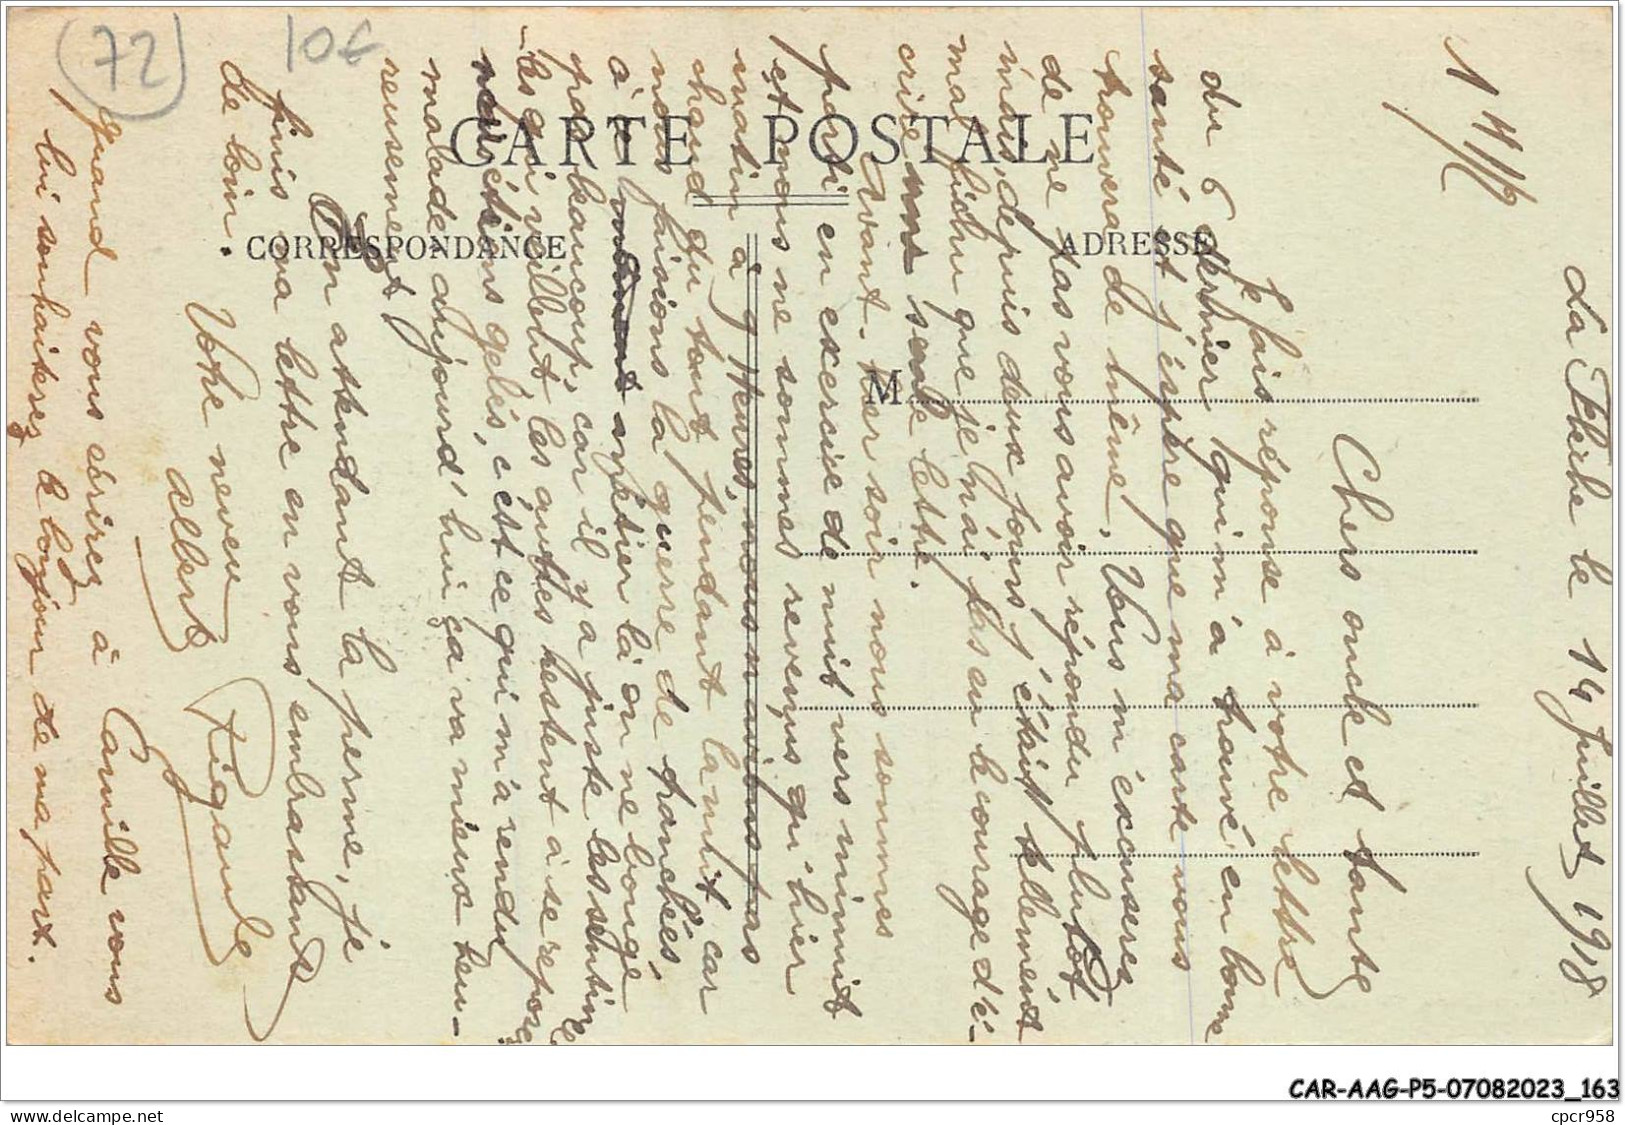 (72)
10€
CARTE POSTALE
CORRESPONDANCE
ADRESSE
M
La Flèche le 14 Juillet 1918
Chers oncle et tante
Je fais réponse à votre lettre
du 6 dernier qui m'a trouvé en bonne
santé et j'éspère que ma carte vous
trouvera de même, Vous m'excuserez
de ne pas vous avoir répondu plutôt,
mais depuis deux jours j'était tellement
mal fichu que je n'ai pas eu le courage d'é-
crire une seule lettre.
Avant-hier soir nous sommes
parti en exercice de nuit vers minuit
et nous ne sommes revenus qu'hier
matin à 9 heures, nous n'avions pas
chaud du tout pendant la nuit car
nous faisions la guerre de tranchées,
à ce métier là on ne bouge
pas beaucoup, car il y a juste les sentinel-
les qui veillent les autres restent à se reposer
nous étions gelés, c'est ce qui m'a rendu
malade, aujourd'hui ça va mieux heu-
reusement.
En attendant la perme, je
finis ma lettre en vous embrassant
de loin.
Votre neveu
Albert
Rigault
quand vous écrirez à Camille vous
lui souhaiterez le bonjour de ma part.
CAR-AAG-P5-07082023_163
delcampe.net
cpcr958